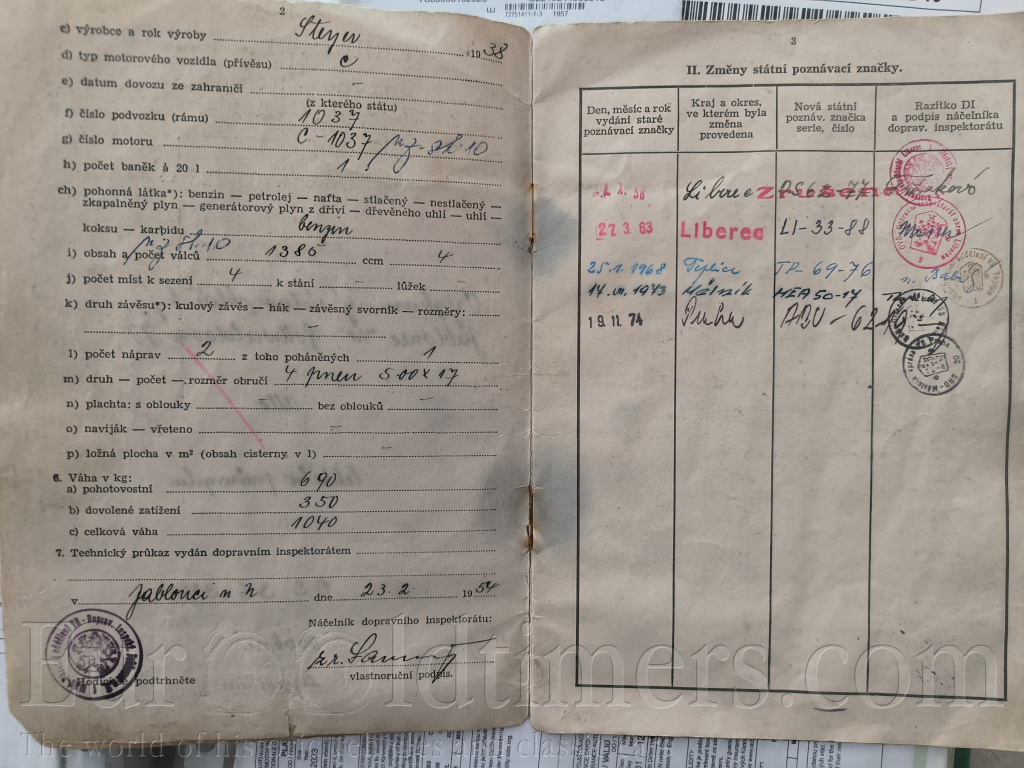 72751411-1-3 1957
2
c) výrobce a rok výroby Steyer 1938
d) typ motorového vozidla (přívěsu) C
e) datum dovozu ze zahraničí –
(z kterého státu)
f) číslo podvozku (rámu) 1037
g) číslo motoru C-1037
h) počet baněk à 20 l 1
ch) pohonná látka*): benzin — petrolej — nafta — stlačený — nestlačený —
zkapalněný plyn — generátorový plyn z dříví — dřevěného uhlí — uhlí —
koksu — karbidu benzin
i) obsah a počet válců 1385 ccm 4
j) počet míst k sezení 4 k stání – lůžek –
k) druh závěsu*): kulový závěs — hák — závěsný svorník — rozměry:
l) počet náprav 2 z toho poháněných 1
m) druh — počet — rozměr obručí 4 pneu 500x17
n) plachta: s oblouky bez oblouků –
o) naviják — vřeteno –
p) ložná plocha v m² (obsah cisterny v l) –
6. Váha v kg:
a) pohotovostní 690
b) dovolené zatížení 350
c) celková váha 1040
7. Technický průkaz vydán dopravním inspektorátem
v Jablonci n N dne 23.2 1954
Náčelník dopravního inspektorátu:
vlastnoruční podpis.
podtrhněte
3
II. Změny státní poznávací značky.
Den, měsíc a rok vydání staré poznávací značky
Kraj a okres, ve kterém byla změna provedena
Nová státní poznáv. značka serie, číslo
Razítko DI a podpis náčelníka doprav. inspektorátu
Liberec
22 3. 63 Liberec LI-33-88
25.1.1968 Teplice TP 69-76
14.VI.1973 Mělník MEA 50-17
19.11.74 Praha
EuroOldtimers.com
The world of historic vehicles and classic